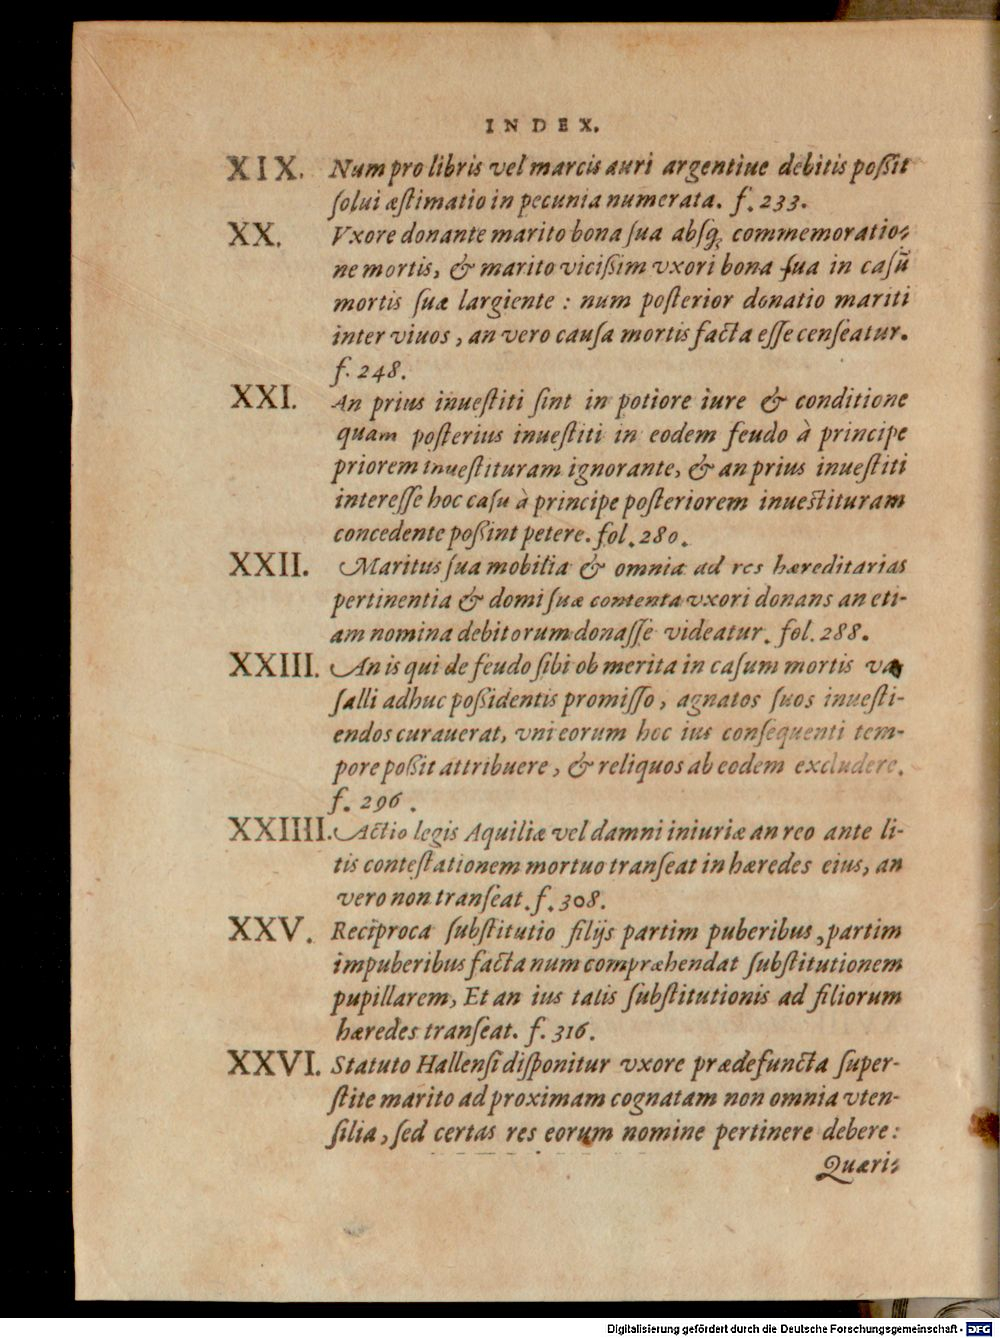 INDEX.
XIX. Num pro libris vel marcis auri argentiue debitis poßit
ſolui æſtimatio in pecunia numerata. f. 233.
XX. Vxore donante marito bona ſua abſq; commemoratio-
ne mortis, & marito vicißim vxori bona ſua in caſũ
mortis ſuæ largiente : num poſterior donatio mariti
inter viuos, an vero cauſa mortis facta eſſe cenſeatur.
f. 248.
XXI. An prius inueſtiti ſint in potiore iure & conditione
quam poſterius inueſtiti in eodem feudo à principe
priorem inueſtituram ignorante, & an prius inueſtiti
intereſſe hoc caſu à principe poſteriorem inueſtituram
concedente poßint petere. fol. 280.
XXII. Maritus ſua mobilia & omnia ad res hæreditarias
pertinentia & domi ſuæ contenta vxori donans an eti-
am nomina debitorum donaſſe videatur. fol. 288.
XXIII. An is qui de feudo ſibi ob merita in caſum mortis va
ſalli adhuc poßidentis promiſſo, agnatos ſuos inueſti-
endos curauerat, vni eorum hoc ius conſequenti tem-
pore poßit attribuere, & reliquos ab eodem excludere.
f. 296.
XXIIII. Actio legis Aquiliæ vel damni iniuriæ an reo ante li-
tis conteſtationem mortuo tranſeat in hæredes eius, an
vero non tranſeat. f. 308.
XXV. Reciproca ſubſtitutio filijs partim puberibus, partim
impuberibus facta num compræhendat ſubſtitutionem
pupillarem, Et an ius talis ſubſtitutionis ad filiorum
hæredes tranſeat. f. 316.
XXVI. Statuto Hallenſi diſponitur vxore prædefuncta ſuper-
ſtite marito ad proximam cognatam non omnia vten-
ſilia, ſed certas res eorum nomine pertinere debere:
Quæri-
Digitalisierung gefördert durch die Deutsche Forschungsgemeinschaft - DFG